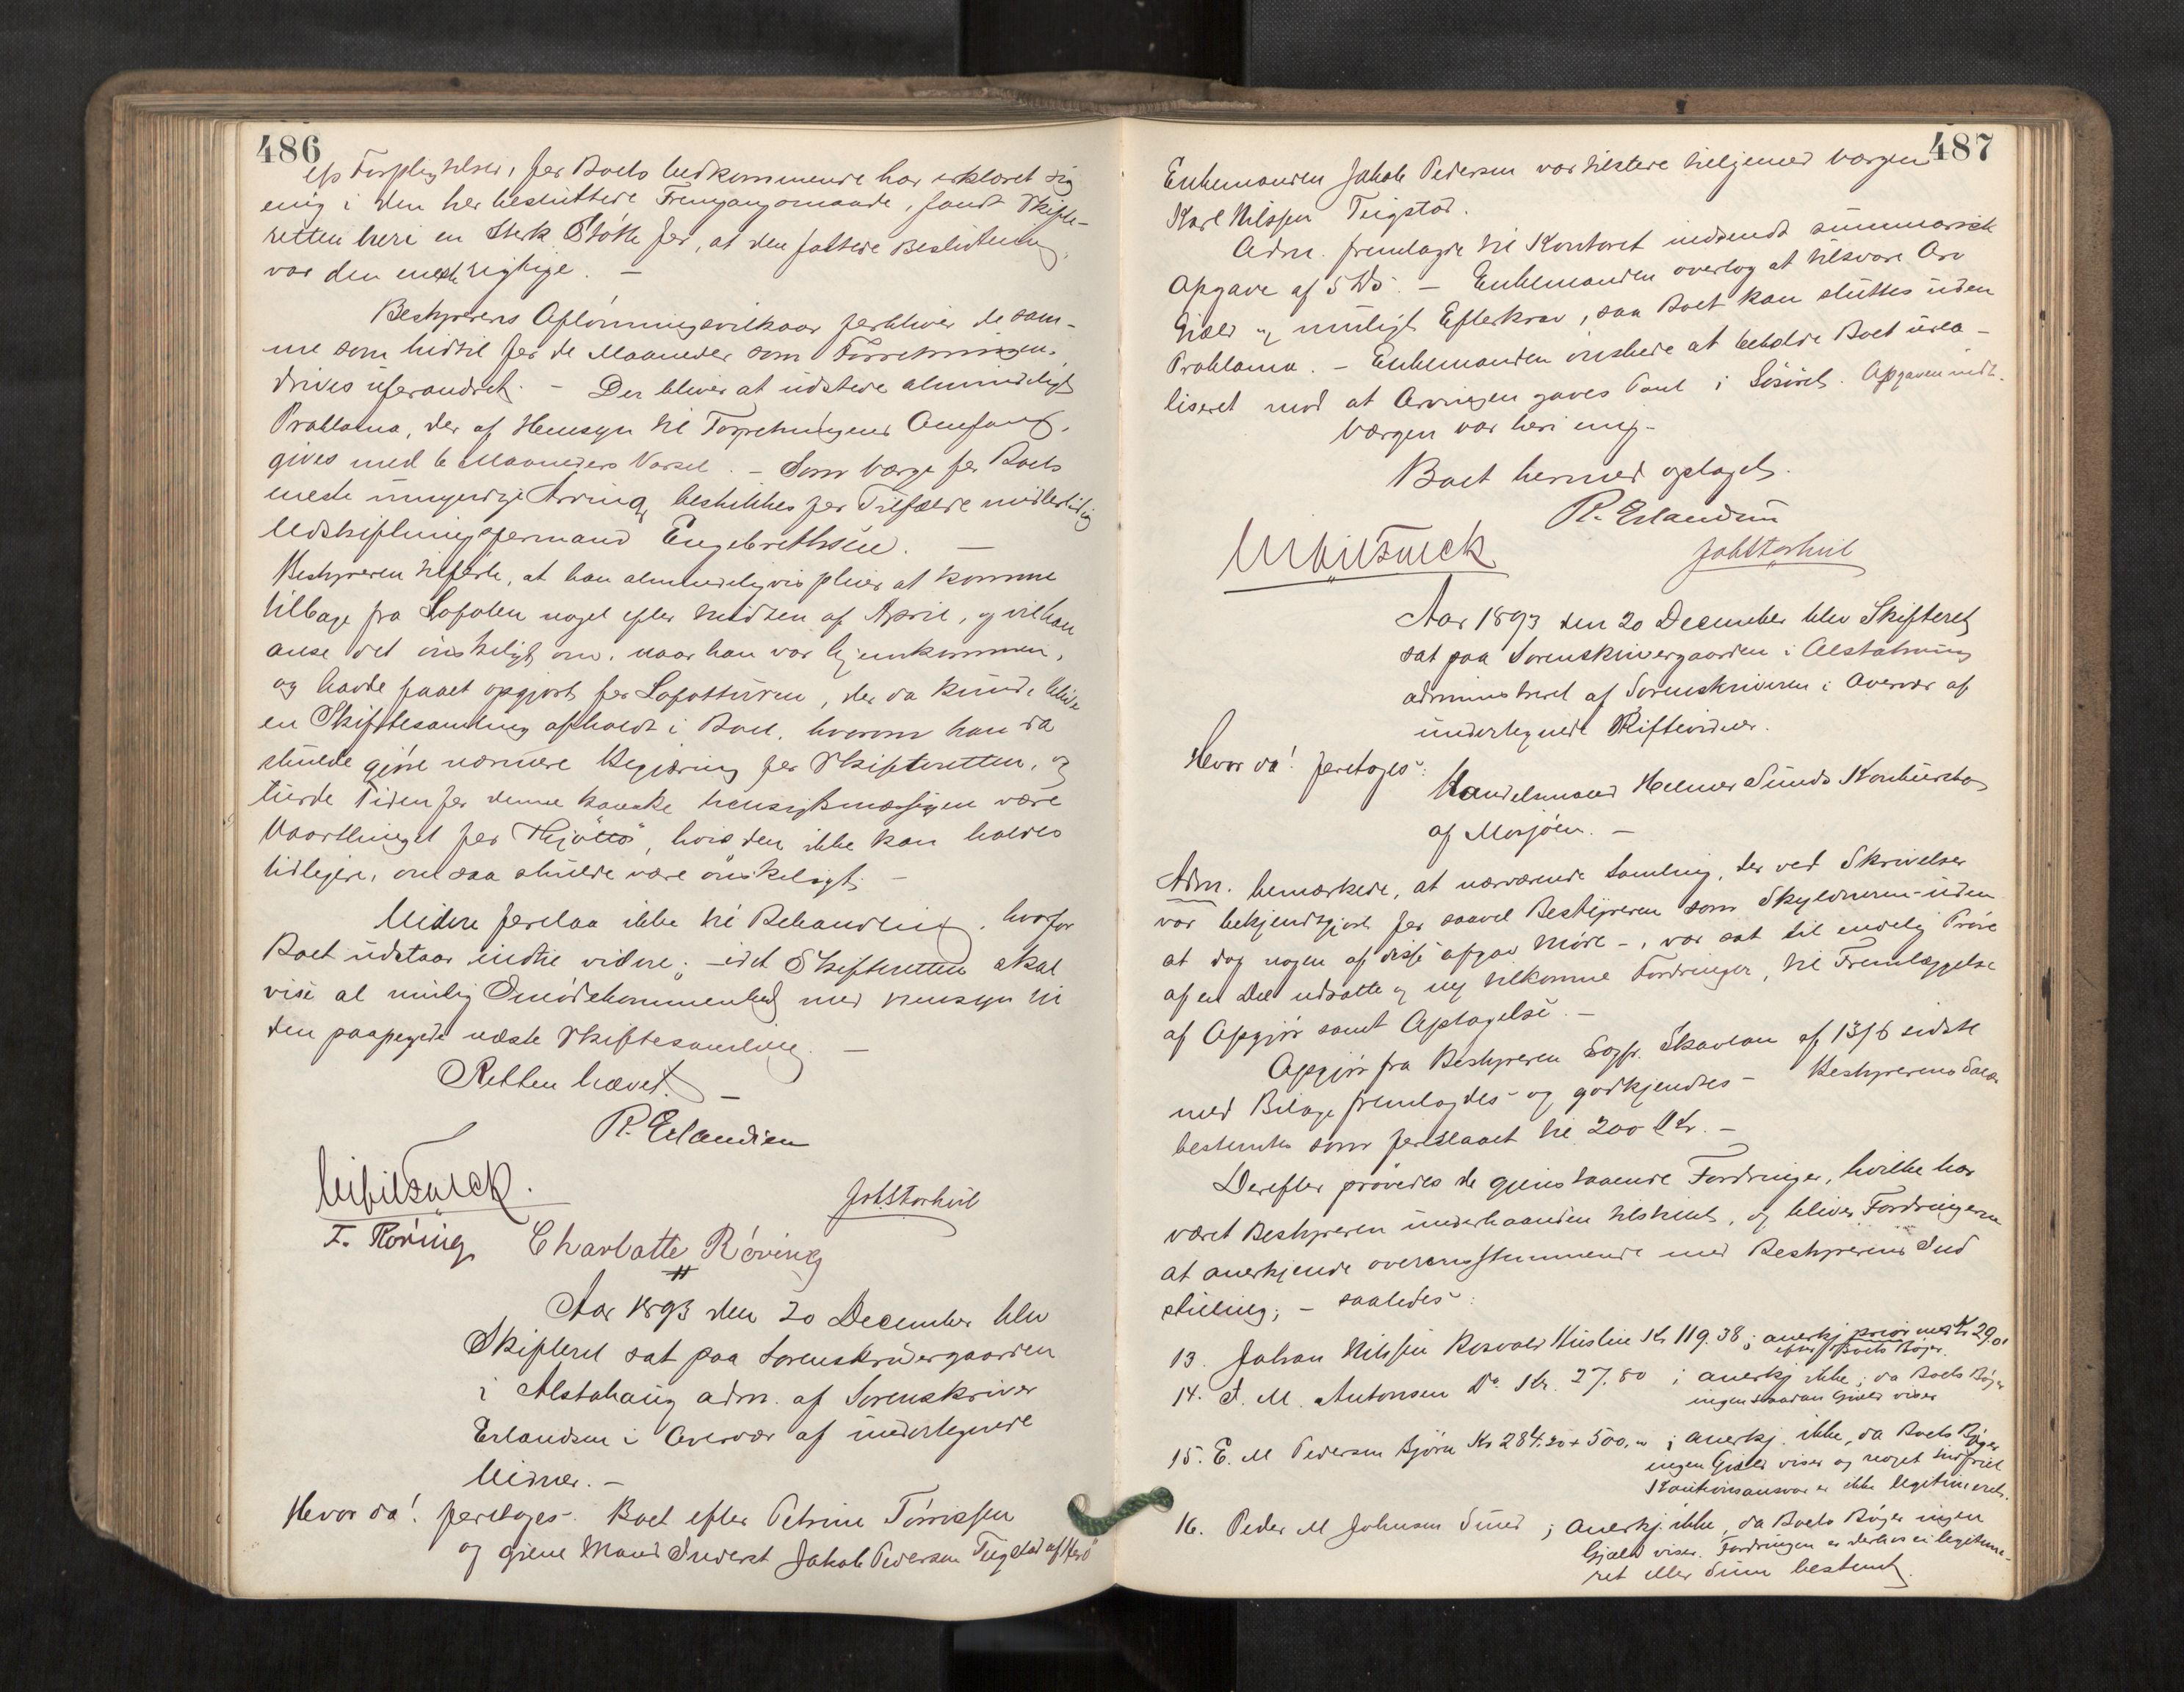 486
Forpligtelser, for Boets vedkommende har erklæret sig
enig i den her besluttede Fremgangsmaade, fandt Skifte-
retten heri en sterk Støtte for, at den fattede Beslutning
var den mest rigtige. —
Bestyrerens Aflønningsvilkaar forbliver de sam-
me som hidtil for de Maaneder som Forretningen
drives uforandret. - Der bliver at udstede almindeligt
Proklama, der af Hensyn til Forretningens Omfang,
gives med 6 Maaneders Varsel. - Som Værge for Boets
eneste umyndige Arving beskikkes for Tilfælde midlertidig
Udskiftningsformand Engebrethsen. —
Bestyreren tilføiede, at han almindeligvis pleier at komme
tilbage fra Lofoten noget efter Midten af April, og vil han
anse det ønskeligt om, naar han var hjemkommen,
og havde faaet opgjort for Lofotturen, der da kunde blive
en Skiftesamling afholdt i Boet, hvorom han da
skulde gjøre nærmere Begjæring for Skifteretten, og
turde Tiden for denne kanske hensigtsmæssigen være
Vaarthinget for Thjøttø, hvis den ikke kan holdes
tidligere, om saa skulde være ønskeligt. —
Videre forelaa ikke til Behandling, hvorfor
Boet udstaar indtil videre; - idet Skifteretten skal
vise al mulig Imødekommenhed med Hensyn til
den paapegede næste Skiftesamling. —
Retten hævet. —
R. Erlandsen
Joh Storhvil
F. Röring Charlotte Röring
Aar 1893 den 20 December blev
Skifteret sat paa Sorenskrivergaarden
i Alstahaug adm. af Sorenskriver
Erlandsen i Overvær af undertegnede
Vidner. —
Hvor da! foretoges: Boet efter Petrine Tørrissen
og gjenl. Mand Inderst Jakob Pedersen Tugstad af Herø
487
Enkemanden Jakob Pedersen var tilstede tilligemed Værgen
Karl Nilssen Tugstad.
Adm. fremlagde til Kontoret indsendt summarisk
Opgave af 5 Ds. — Enkemanden overtog at tilsvare Arv
Gjæld og muligt Efterkrav, saa Boet kan sluttes uden
Proklama. - Enkemanden ønskede at beholde Boet urea-
liseret mod at Arvingen gaves Pant i Løsøret. Opgaven indt.
Værgen var heri enig.
Boet hermed optaget.
R. Erlandsen
Joh Storhvil
Aar 1893 den 20 December blev Skifteret
sat paa Sorenskrivergaarden i Alstahaug
administreret af Sorenskriveren i Overvær af
undertegnede Skiftevidner.
Hvor da! foretoges:
Handelsmand Helmer Sunds Konkursbo
af Mosjøen. —
Adm. bemærkede, at nærværende Samling, der ved Skrivelser
var bekjendtgjort for saavel Bestyreren som Skyldneren - uden
at dog nogen af disse afgav Møde -, var sat til endelig Prøve
af en Del udsatte og ny tilkomne Fordringer, til Fremlæggelse
af Opgjør samt Optagelse. —
Opgjør fra Bestyreren Sagf. Skavlan af 13/6 sidste
med Bilage fremlagdes og godkjendtes - Bestyrerens Salær
bestemtes som foreslaaet til 200 Kr. —
Derefter prøvedes de gjenstaaende Fordringer, hvilke har
været Bestyreren underhaanden tilstillet, og bliver Fordringerne
at anerkjende overensstemmende med Bestyrerens Ind
stilling; - saaledes:
13. Johan Nilssen Rosvold Kr 119.38; anerkj. prior. med Kr 29.01
efter Boets Bøger.
14. I. M. Antonsen Do Kr. 27.80; anerkj ikke, da Boets Bøger
ingen saadan Gjæld viser
15. E. M Pedersen Bjørn Kr 284.20 + 500,00; anerkj. ikke, da Boets Bøger
ingen Gjæld viser og noget indfriet
Kautionsansvar er ikke legitimeret.
16. Peder M Johnsen Sund; Anerkj. ikke, da Boets Bøger ingen
Gjæld viser. Fordringen er derhos ei legitime-
ret eller Sum bestemt.